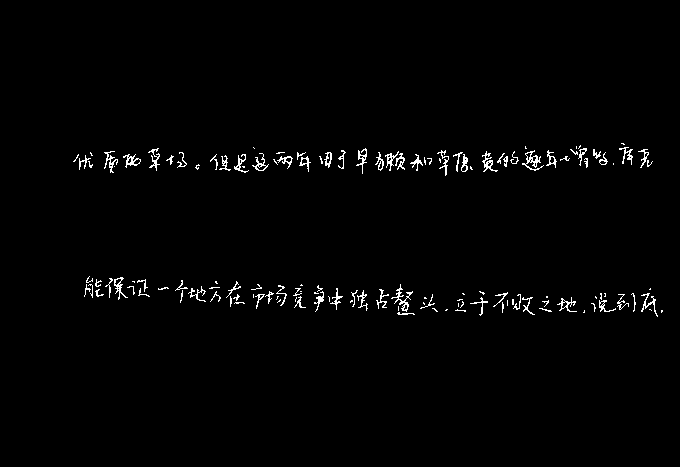 优质的草场。但是这两年由于旱獭和草原黄的逐年增多，库克
能保证一个地方在市场竞争中独占鳌头，立于不败之地，说到底，